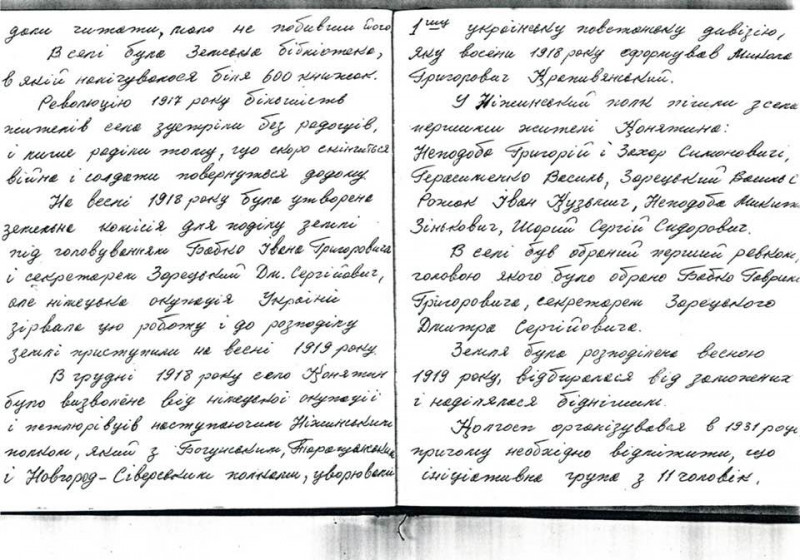 дали читати, мало не побивши його
В селі була Земська бібліотека,
в якій налічувалося біля 600 книжок.
Революцію 1917 року більшість
жителів села зустріли без радощів,
і лише раділи тому, що скоро скінчиться
війна і солдати повернуться додому
На весні 1918 року була утворена
земельна комісія для поділу землі
під головуванням Бабко Івана Григоровича
і секретарем Зарецький Дм. Сергійович,
але німецька окупація України
зірвала цю роботу і до розподілу
землі приступили на весні 1919 року
В грудні 1918 року село Конятин
було визволене від німецкої окупації
і петлюрівців наступаючим Ніжинським
полком, який з Богунським, Таращанським
і Новгород-Сіверським полками, уворювали
1шу українську повстанську дивізію,
яку восени 1918 року сформував Микола
Григорович Кропивянський.
У Ніжинський полк пішли з села
першими жителі Конятина:
Неподоба Григорій і Захар Симоновичі,
Герасименко Василь, Зарецький Василь С
Рожок Іван Кузьмич, Неподоба Микита
Зінькович, Шорий Сергій Сидорович.
В селі був обраний перший ревком,
головою якого було обрано Бабко Гаврила
Григоровича, секретарем Зарецького
Дмитра Сергійовича.
Земля була розподілена весною
1919 року, відбиралася від заможених
і наділялася біднішим.
Колгосп організувався в 1931 році
причому необхідно відмітити, що
ініціативна група з 11 чоловік.